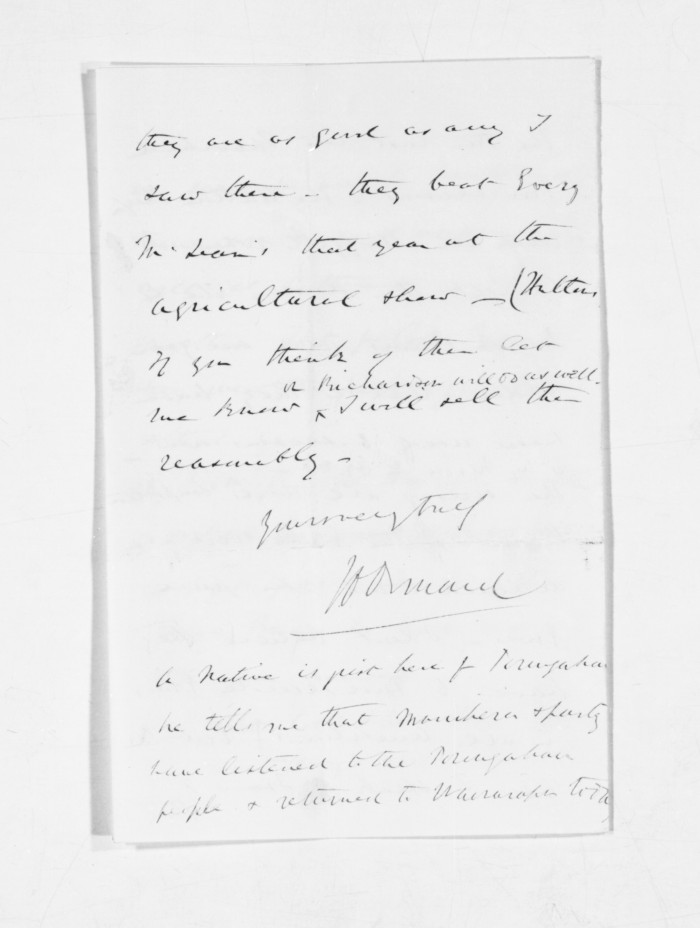 they are as good as any I
saw there - they beat Every
McLean's that year at the
agricultural show - (
If you think of them let
or Richardson will do as well.
me know & I will sell them
reasonably -
Yours very truly
JD Ormond
A Native is just here f Porangahau
he tells me that Manihera & party
have listened to the Porangahau
people & returned to Wairarapa